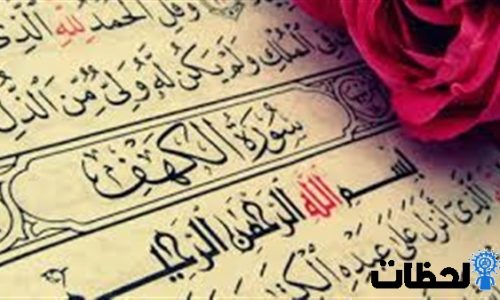 وَقُلِ الْحَمْدُ لِلَّهِ الَّذِي
فِي الْمُلْكِ وَلَمْ يَكُن لَّهُ وَلِيٌّ مِّنَ الذُّلِّ
سُورَةُ الْكَهْفِ
بِسْمِ اللَّهِ الرَّحْمَٰنِ الرَّحِيمِ
الَّذِي أَنزَلَ عَلَىٰ عَبْدِهِ الْكِتَا
لحظات